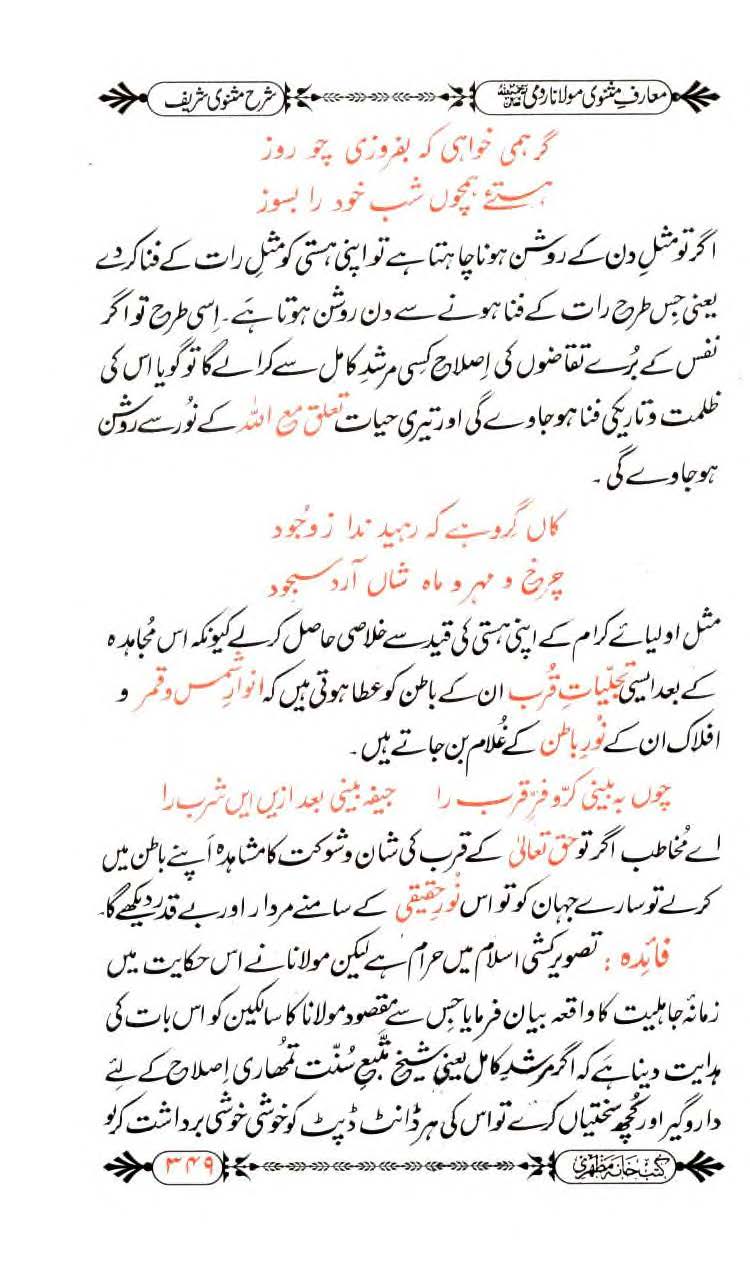 معارفِ مثنوی مولانا رومی رحمۃ اللہ علیہ
شرح مثنوی شریف
گر ہمی خواہی کہ بفروزی چو روز
ہستئے ہمچوں شب خود را بسوز
اگر تو مثلِ دن کے روشن ہونا چاہتا ہے تو اپنی ہستی کو مثلِ رات کے فنا کردے
یعنی جس طرح رات کے فنا ہونے سے دن روشن ہوتا ہے۔ اِسی طرح تو اگر
نفس کے بُرے تقاضوں کی اِصلاح کِسی مرشدِ کامل سے کرالے گا تو گویا اس کی
ظلمت و تاریکی فنا ہوجاوے گی اور تیری حیات تعلق مع اللہ کے نُور سے روشن
ہوجاوے گی۔
کاں گروہے کہ رہیدندا ز وجُود
چرخ و مہر و ماہ شاں آرد سجود
مثل اولیائے کرام کے اپنی ہستی کی قید سے خلاصی حاصل کرلے کیونکہ اس مُجاہدہ
کے بعد ایسی تجلّیاتِ قُرب ان کے باطن کو عطا ہوتی ہیں کہ انوارِ شمس و قمر و
افلاک ان کے نُورِ باطن کے غُلام بن جاتے ہیں۔
چوں بہ بینی کرّ و فرِّ قرب را جیفہ بینی بعد ازیں ایں شرب را
اے مُخاطب اگر تو حق تعالیٰ کے قرب کی شان و شوکت کا مشاہدہ اَپنے باطن میں
کرلے تو سارے جہان کو تو اس نُورِ حقیقی کے سامنے مردار اور بے قدر دیکھے گا۔
فائِدہ : تصویر کشی اسلام میں حرام ہے لیکن مولانا نے اس حکایت میں
زمانۂ جاہلیت کا واقعہ بیان فرمایا جس سے مقصود مولانا کا سالکین کو اس بات کی
ہدایت دینا ہے کہ اگر مرشدِ کامل یعنی شیخ متّبعِ سُنّت تُمھاری اِصلاح کے لئے
داروگیر اور کُچھ سختیاں کرے تو اس کی ہر ڈانٹ ڈپٹ کو خوشی خوشی برداشت کرلو
کتب خانہ مظہری
۳۴۹